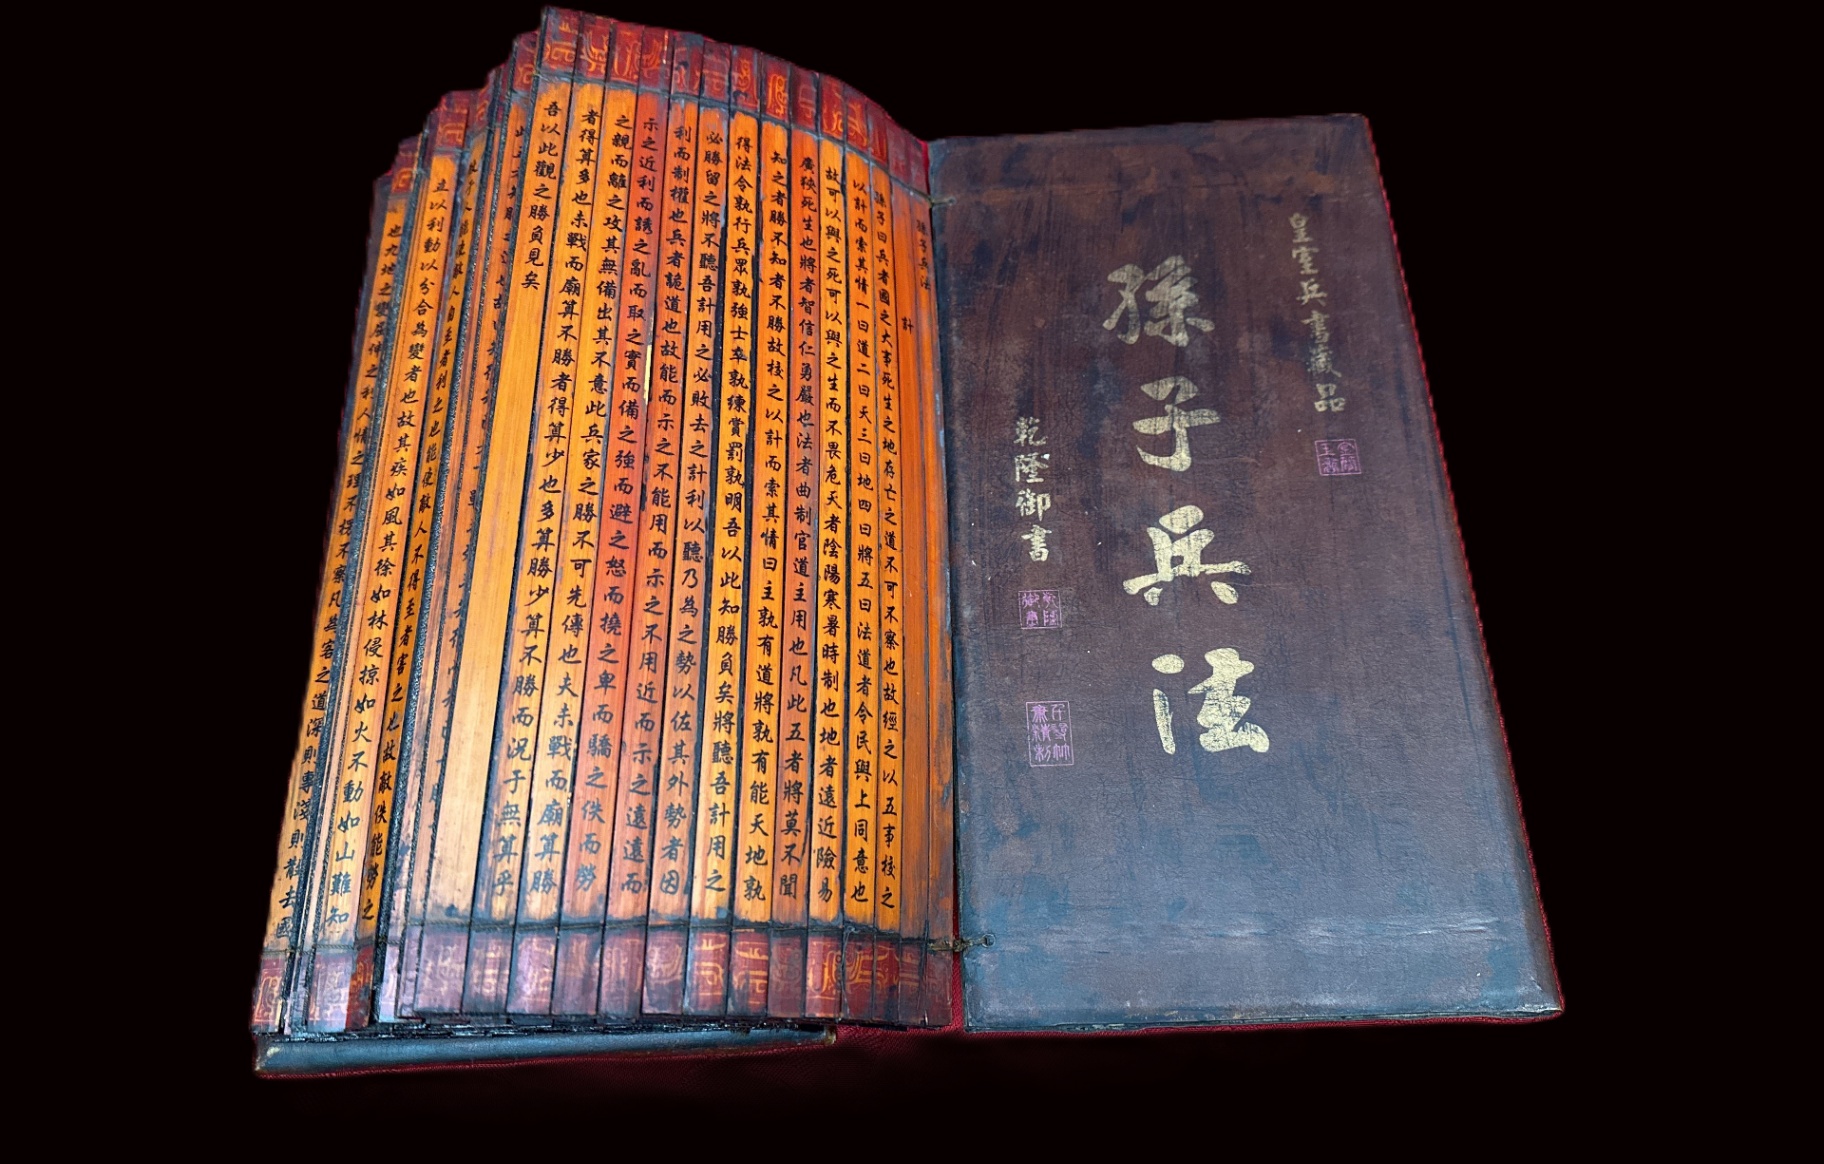 皇室兵書藏品
孫子兵法
乾隆御書
孫子兵法
計
孫子曰兵者國之大事死生之地存亡之道不可不察也故經之以五事校之
以計而索其情一曰道二曰天三曰地四曰將五曰法道者令民與上同意也
故可以與之死可以與之生而不畏危天者陰陽寒暑時制也地者遠近險易
廣狹死生也將者智信仁勇嚴也法者曲制官道主用也凡此五者將莫不聞
知之者勝不知者不勝故校之以計而索其情曰主孰有道將孰有能天地孰
得法令孰行兵眾孰強士卒孰練賞罰孰明吾以此知勝負矣將聽吾計用之
必勝留之將不聽吾計用之必敗去之計利以聽乃為之勢以佐其外勢者因
利而制權也兵者詭道也故能而示之不能用而示之不用近而示之遠遠而
示之近利而誘之亂而取之實而備之強而避之怒而撓之卑而驕之佚而勞
之親而離之攻其無備出其不意此兵家之勝不可先傳也夫未戰而廟算勝
者得算多也未戰而廟算不勝者得算少也多算勝少算不勝而況于無算乎
吾以此觀之勝負見矣
人自至者利之也能使敵人不得至者害之也故敵佚能勞之
立以利動以分合為變者也故其疾如風其徐如林侵掠如火不動如山難知
也九地之變屈伸之利人情之理不察凡為客之道深則專淺則散去國